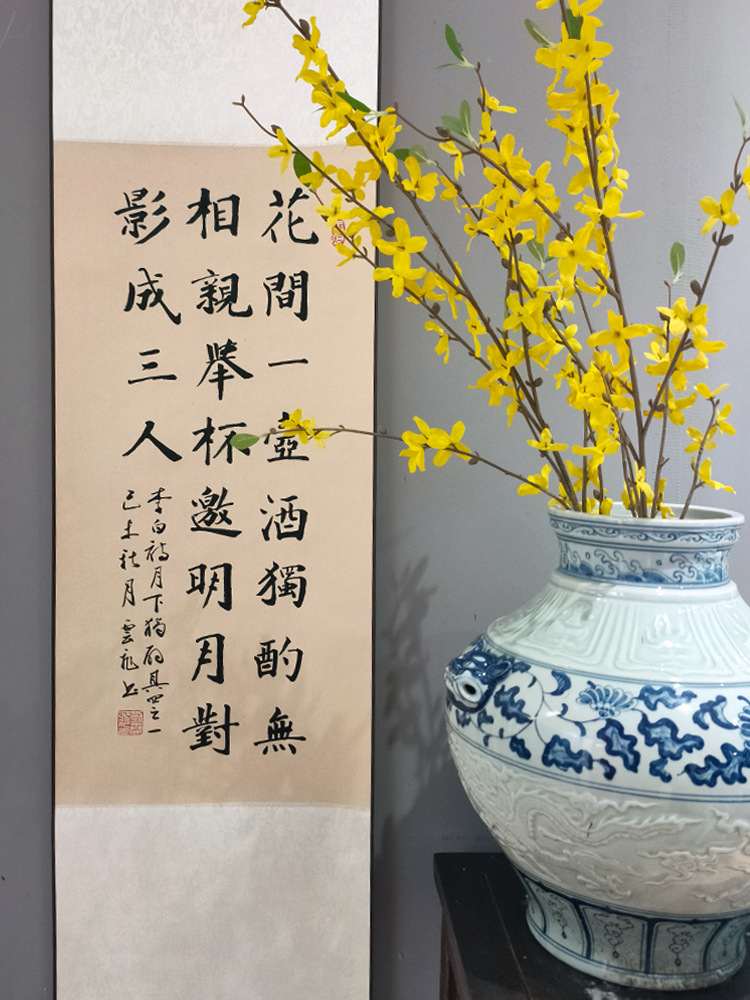 花間一壺酒獨酌無
相親舉杯邀明月對
影成三人
李白詩月下獨酌其四之一
己未秋月雲书